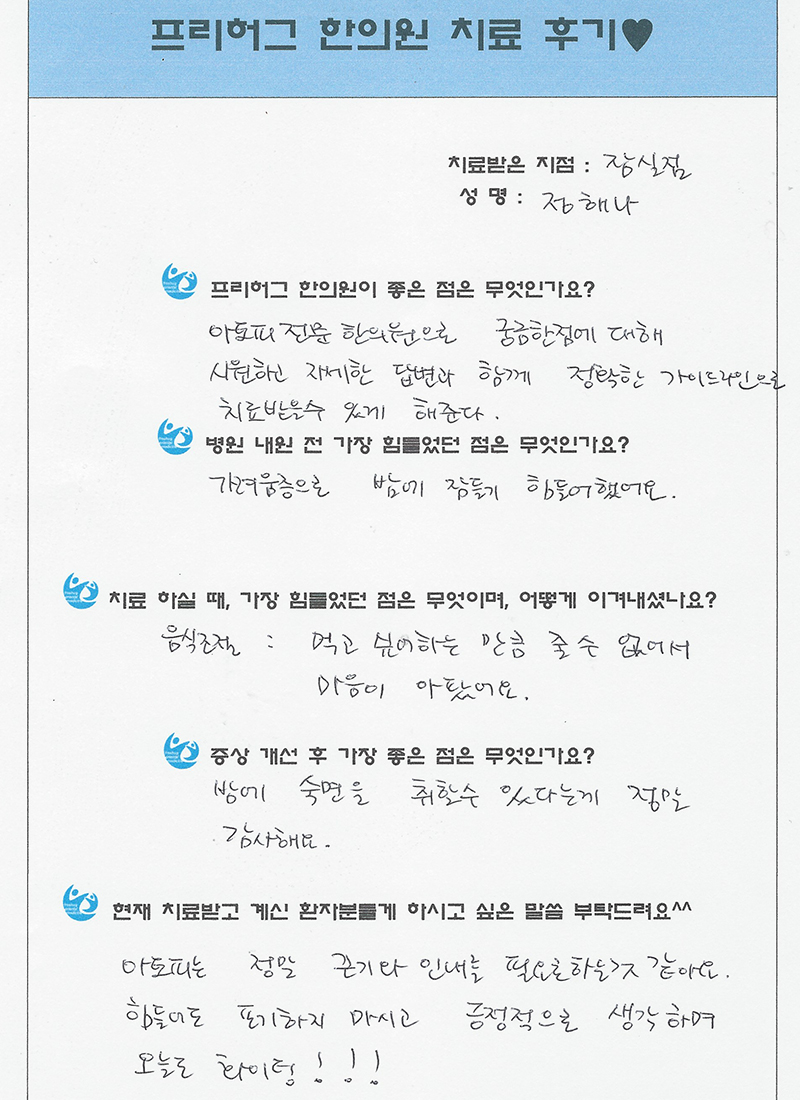 프리허그 한의원 치료 후기♥
치료받은 지점 : 잠실점
성 명 : 정해나
프리허그 한의원이 좋은 점은 무엇인가요?
아토피 전문 한의원으로 궁금한점에 대해
시원하고 자세한 답변과 함께 정확한 가이드라인으로
치료받을수 있게 해준다.
병원 내원 전 가장 힘들었던 점은 무엇인가요?
가려움증으로 밤에 잠들기 힘들어했어요.
치료 하실 때, 가장 힘들었던 점은 무엇이며, 어떻게 이겨내셨나요?
음식조절 : 먹고 싶어하는 만큼 줄 수 없어서
마음이 아팠어요.
증상 개선 후 가장 좋은 점은 무엇인가요?
밤에 숙면을 취할수 있다는게 정말
감사해요.
현재 치료받고 계신 환자분들게 하시고 싶은 말씀 부탁드려요^^
아토피는 정말 끈기와 인내를 필요로하는것 같아요.
힘들어도 포기하지 마시고 긍정적으로 생각하며
오늘도 화이팅!!!